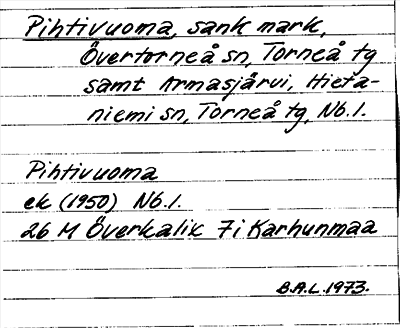 Pihtivuoma, sank mark,
Övertorneå sn, Torneå tg
samt Armasjärvi, Hieta-
niemi sn, Torneå tg, Nb.l.
Pihtivuoma
ek (1950) Nb.l.
26 M Överkalix 7i Karhunmaa
B.A.L. 1973.